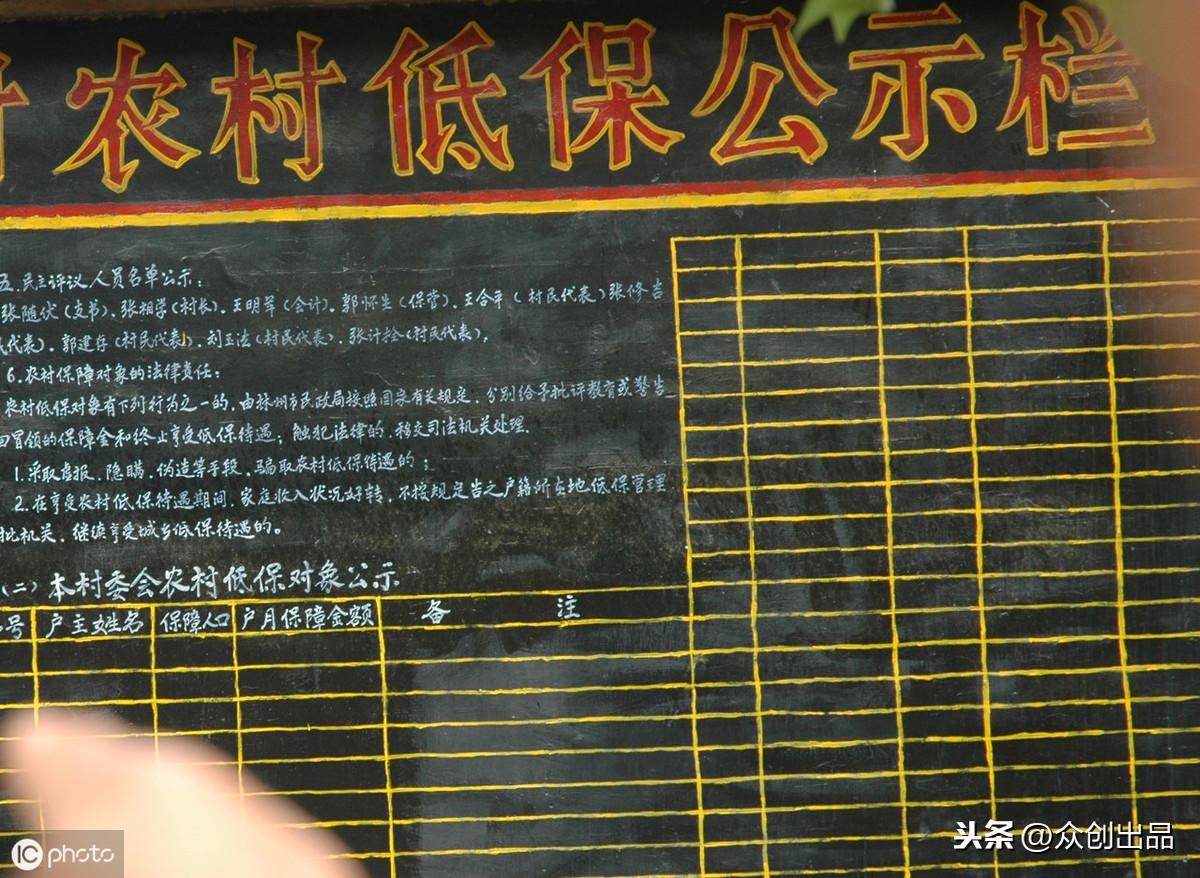 农村低保公示栏
五.民主评议人员名单公示：
张随伏(支书)、张相学(村长)、王明军(会计)、郭怀生(保营)、王合平(村民代表)张修吉
代表)、郭建存(村民代表)、刘玉法(村民代表)、张计拴(村民代表)，
6.农村保障对象的法律责任：
农村低保对象有下列行为之一的，由林州市民政局按照国家有关规定，分别给予批评教育或警告
回冒领的保障金和终止享受低保待遇；触犯法律的，移交司法机关处理.
1.采取虚报、隐瞒、伪造等手段，骗取农村低保待遇的；
2.在享受农村低保待遇期间，家庭收入状况好转，不按规定告之户籍所在地低保管理
批机关，继续享受城乡低保待遇的。
(二)本村委会农村低保对象公示
号 户主姓名 保障人口 户月保障金额 备注
IC photo
头条 @众创出品